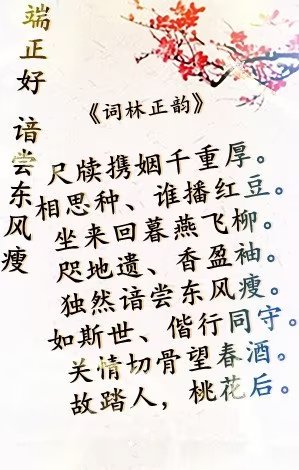 端正好 谙尝东风瘦
《词林正韵》
尺牍携姻千重厚。
相思种、谁播红豆。
坐来回暮燕飞柳。
咫地遗、香盈袖。
独然谙尝东风瘦。
如斯世、偕行同守。
关情切骨望春酒。
故踏人，桃花后。